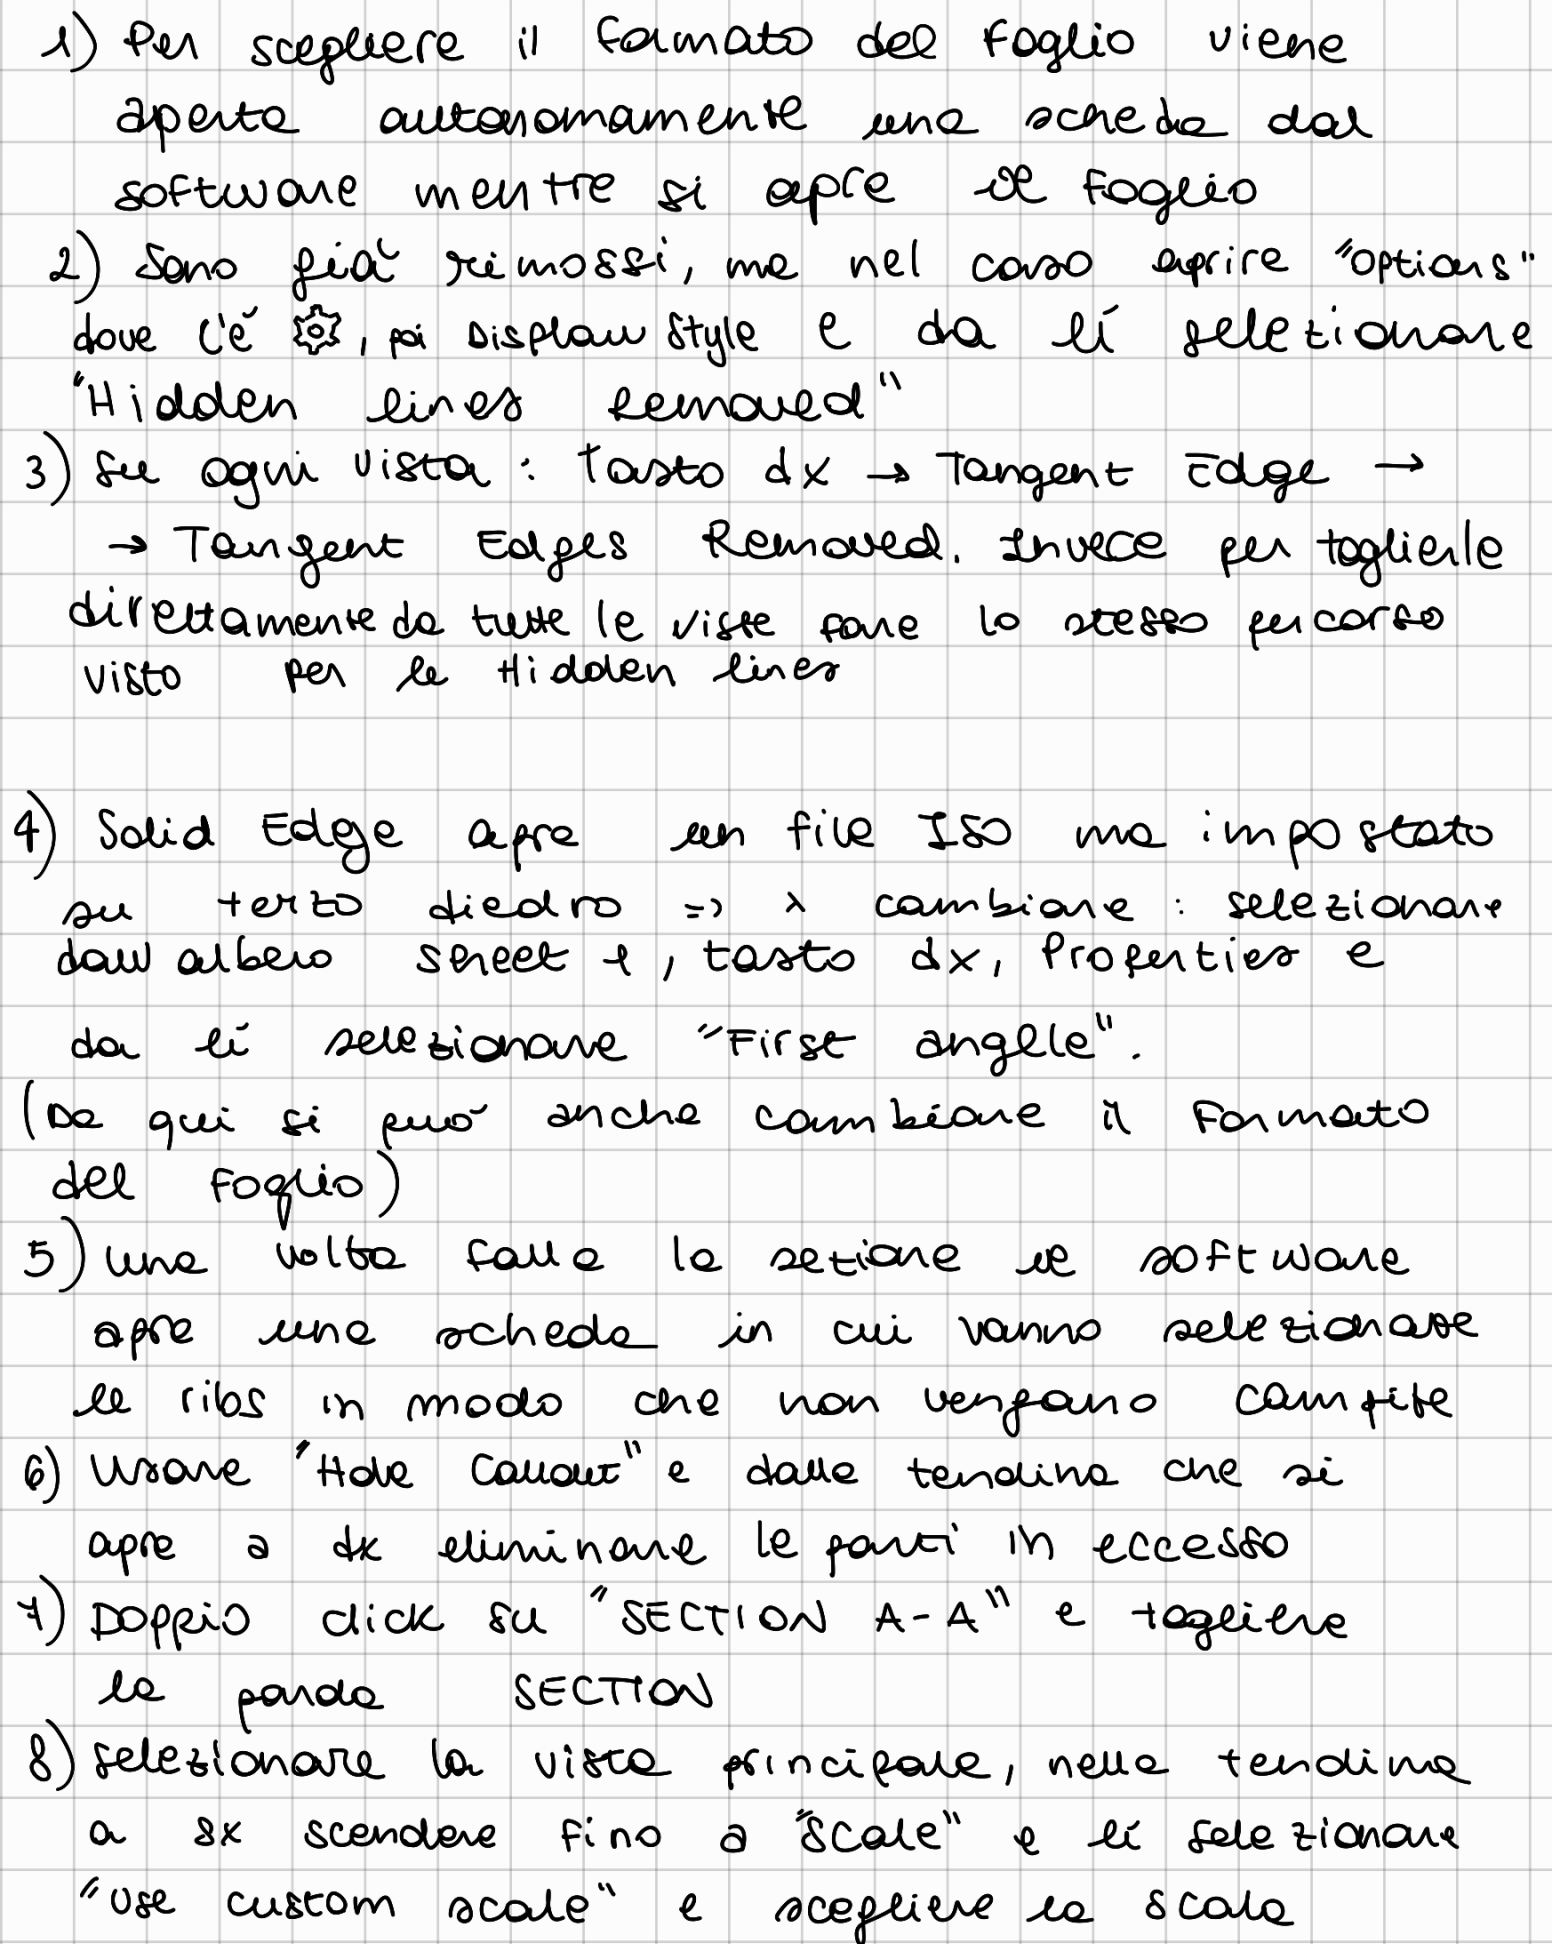 1) Per scegliere il formato del foglio viene
aperta autonomamente una scheda dal
software mentre si apre il foglio
2) Sono già rimossi, ma nel caso aprire "options"
dove c'è, poi Display Style e da lì selezionare
"Hidden lines Removed"
3) Su ogni vista : Tasto dx → Tangent Edge →
→ Tangent Edges Removed. Invece per toglierle
direttamente da tutte le viste fare lo stesso percorso
visto per le Hidden lines
4) Solid Edge apre un file ISO ma impostato
su terzo diedro => x cambiare : selezionare
dall'albero sheet 1, tasto dx, Properties e
da lì selezionare "First angle".
(Da qui si può anche cambiare il formato
del foglio)
5) una volta fatta la sezione il software
apre una scheda in cui vanno selezionate
le ribs in modo che non vengano campite
6) Usare "Hole Callout" e dalla tendina che si
apre a dx eliminare le parti in eccesso
7) Doppio click su "SECTION A-A" e togliere
la parola SECTION
8) selezionare la vista principale, nella tendina
a sx scendere fino a "Scale" e lì selezionare
"Use custom scale" e scegliere la scala